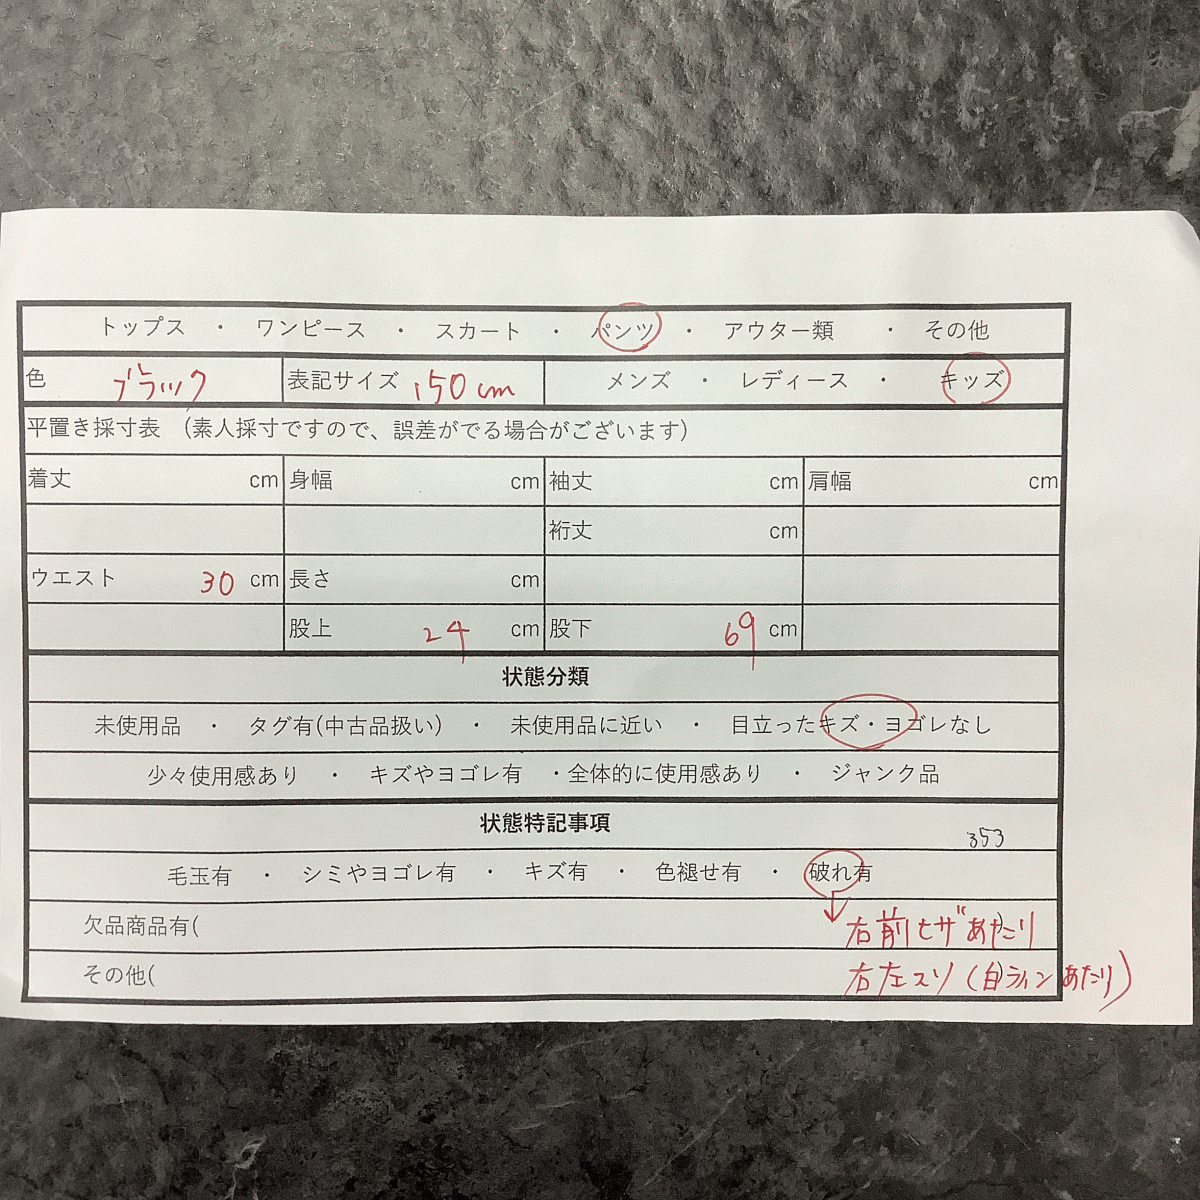 トップス ・ ワンピース ・ スカート ・ パンツ ・ アウター類 ・ その他
色 ブラック 表記サイズ 150cm メンズ ・ レディース ・ キッズ
平置き採寸表 (素人採寸ですので、誤差がでる場合がございます)
着丈 cm 身幅 cm 袖丈 cm 肩幅 cm
裄丈 cm
ウエスト 30 cm 長さ cm
股上 24 cm 股下 69 cm
状態分類
未使用品 ・ タグ有(中古品扱い) ・ 未使用品に近い ・ 目立ったキズ・ヨゴレなし
少々使用感あり ・ キズやヨゴレ有 ・全体的に使用感あり ・ ジャンク品
状態特記事項
353
毛玉有 ・ シミやヨゴレ有 ・ キズ有 ・ 色褪せ有 ・ 破れ有
欠品商品有( ) 右前ヒザあたり
その他( ) 右左スソ(白ラインあたり)